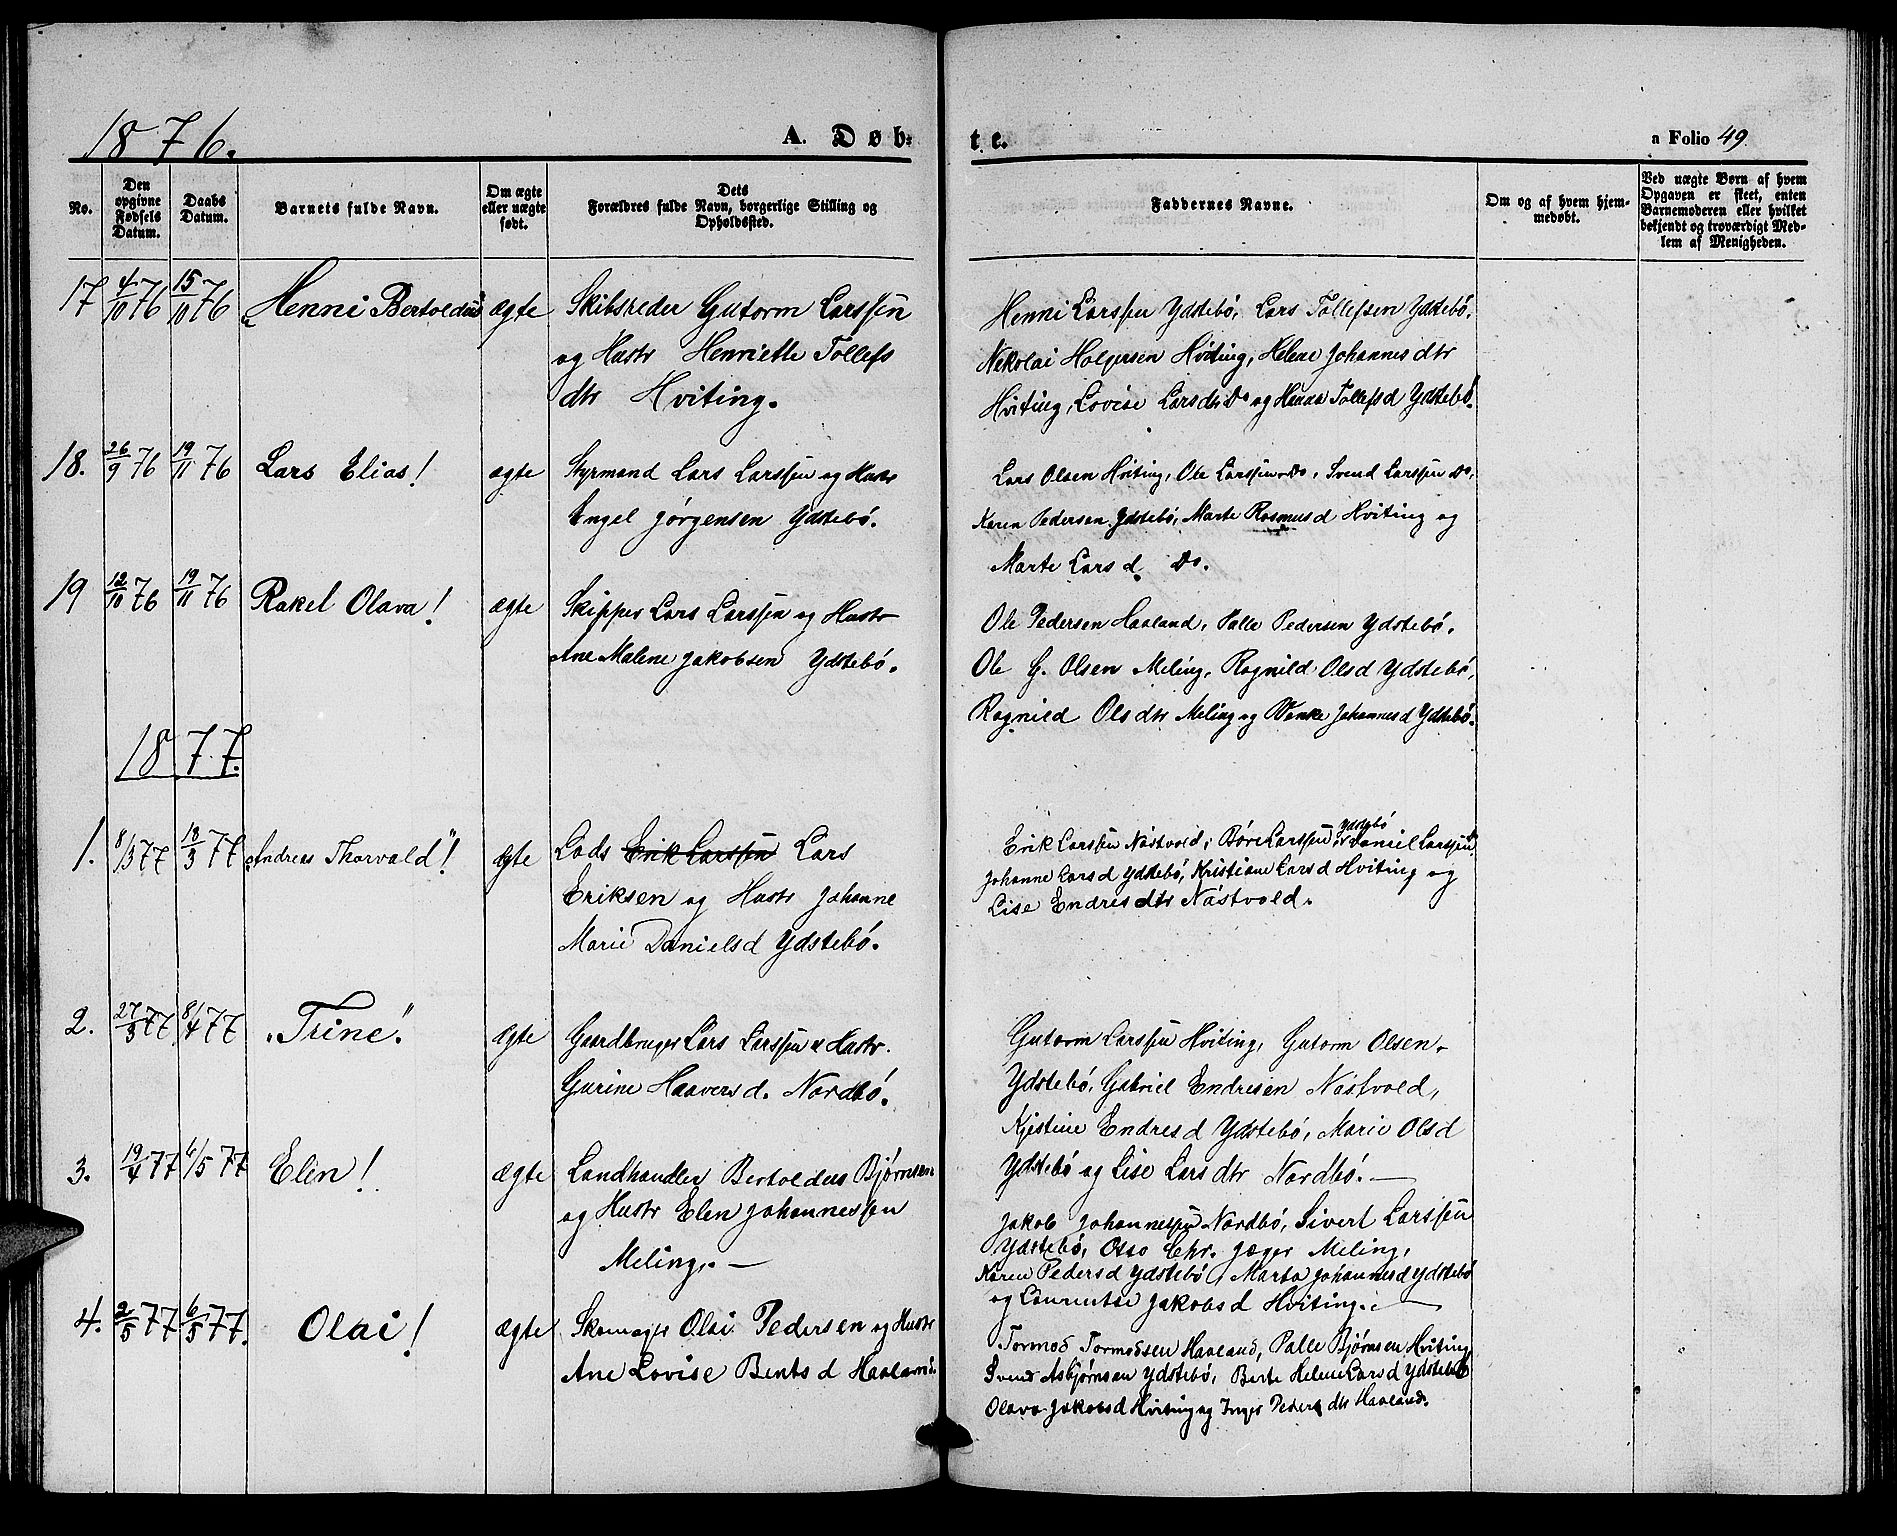 1876.
A. Døb-
te.
a Folio 49
No.
Den opgivne Fødsels Datum.
Daabs Datum.
Barnets fulde Navn.
Om ægte eller uægte født.
Dets Forældres fulde Navn, borgerlige Stilling og Opholdssted.
Faddernes Navne.
Om og af hvem hjemmedøbt.
Ved uægte Børn af hvem Opgaven er skeet, enten Barnemoderen eller hvilket bekjendt og troværdigt Medlem af Menigheden.
17 4/10 76 15/10 76 "Henni Bertoldus" ægte Skibsreder Gutorm Larssen
og Hustr Henriette Tollefs
dtr Hviting.
Henni Larssen Ydstebö, Lars Tollefsen Ydstebö,
Nekolai Holgersen Hviting, Helene Johannesdtr
Hviting, Lovise Larsdtr Do og Henna Tollefsd Ydstebö.
18. 26/9 76 19/11 76 Lars Elias! ægte Styrmand Lars Larssen og Hustr
Engel Jörgensen Ydstebö.
Lars Olsen Hviting, Ole Larssen Do, Svend Larssen Do,
Karen Pedersen Ydstebö, Marte Rasmusd Hviting og
Marte Larsd. Do.
19 12/10 76 19/11 76 Rakel Olava! ægte Skipper Lars Larssen og Hustr
Ane Malene Jakobsen Ydstebö.
Ole Pedersen Haaland, Palle Pedersen Ydstebö.
Ole G. Olsen Meling, Ragnild Olsd Ydstebö,
Ragnild Olsdtr Meling og Wenke Johannesd Ydstebö.
1877.
1. 8/3 77 18/3 77 "Andreas Thorvald"! ægte Lods Erik Larssen Lars
Eriksen og Hustr Johanne
Marie Danielsd Ydstebö.
Erik Larssen Nästvold, Böre Larssen Ydstebö, Daniel Larssen
Johanne Larsd Ydstebö, Kristiane Larsd Hviting og
Lise Endresdtr Nästvold.
2. 27/3 77 8/4 77 "Trine". ægte Gaardbruger Lars Larssen & Hustr.
Gurine Haaversd. Nordbö.
Gutorm Larssen Hviting, Gutorm Olsen
Ydstebö, Gabriel Endresen Nästvold,
Kjestine Endresd Ydstebö, Marie Olsd
Ydstebö og Lise Larsdtr Nordbö.—
3. 19/4 77 6/5 77 Elen! ægte Landhandler Bertoldus Bjørnsen
og Hustr Elen Johannessen
Meling.—
Jakob Johannessen Nordbö, Sivert Larssen
Ydstebö, Otto Chr. Jæger Meling,
Karen Pedersd Ydstebö, Marta Johannesd Ydstebö
og Laurentse Jakobsd Hviting.—
4. 2/5 77 6/5 77. Olai! ægte Skomager Olai Pedersen og Hustr
Ane Lovise Bentsd Haaland.
Tormod Tormodsen Haaland, Palle Bjørnsen Hviting
Svend Asbjørnsen Ydstebö, Berte Helene Larsd Ydstebö
Olava Jakobsd Hviting og Inger Pedersdtr Haaland.